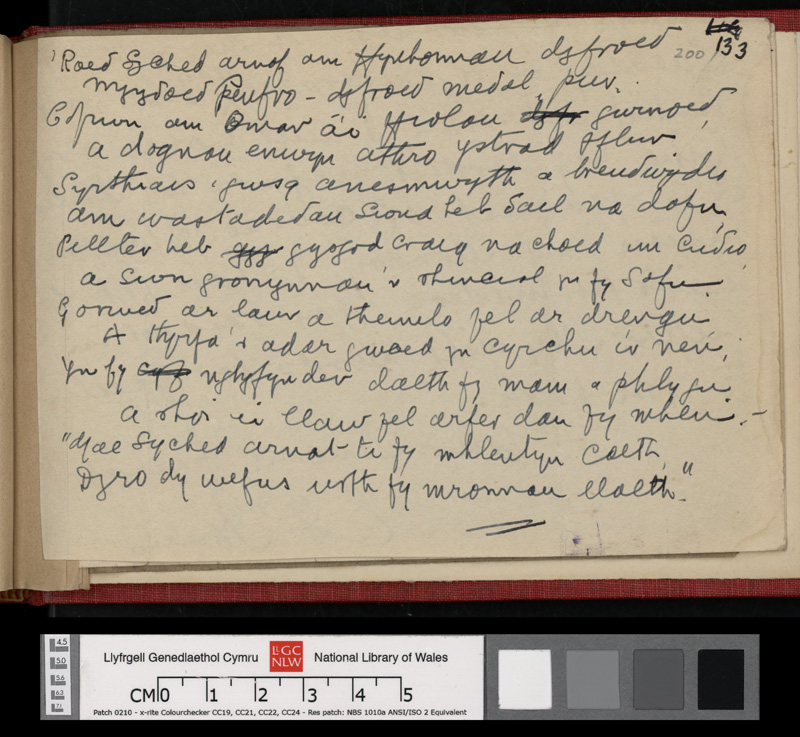 'Roed Syched arnaf am ffynhonnau dyfroed
Mynydoed Penfro – dyfroed medal, pur.
Cofiwn am Omar a'i ffiolau gwinoed,
a dognau enwyn athro ystrad fflur
Syrthiais i gwsg anesmwyth a breudwydio
am wastadedau heb dail na dafn,
Pellter heb gysgod craig na choed im cudio,
a swn gronynnau'r yn fy safn.
Gorwed ar lawr a theimlo fel ar drengu
A thyrfa'r adar gwaed yn cyrchu i'r nen;
Yn fy nghyfyngder daeth fy mam a phlygu
a rhoi ei llaw fel arfer dan fy mhen. –
"Mae Syched arnat-ti fy mhlentyn caeth,
Dyro dy wefus wrth fy mronnau llaeth."
200
133
Llyfrgell Genedlaethol Cymru
LlGC
NLW
National Library of Wales
CM 0 1 2 3 4 5
Patch 0210 - x-rite Colourchecker CC19, CC21, CC22, CC24 - Res patch: NBS 1010a ANSI/ISO 2 Equivalent
4.5
5.0
5.6
6.3
7.1